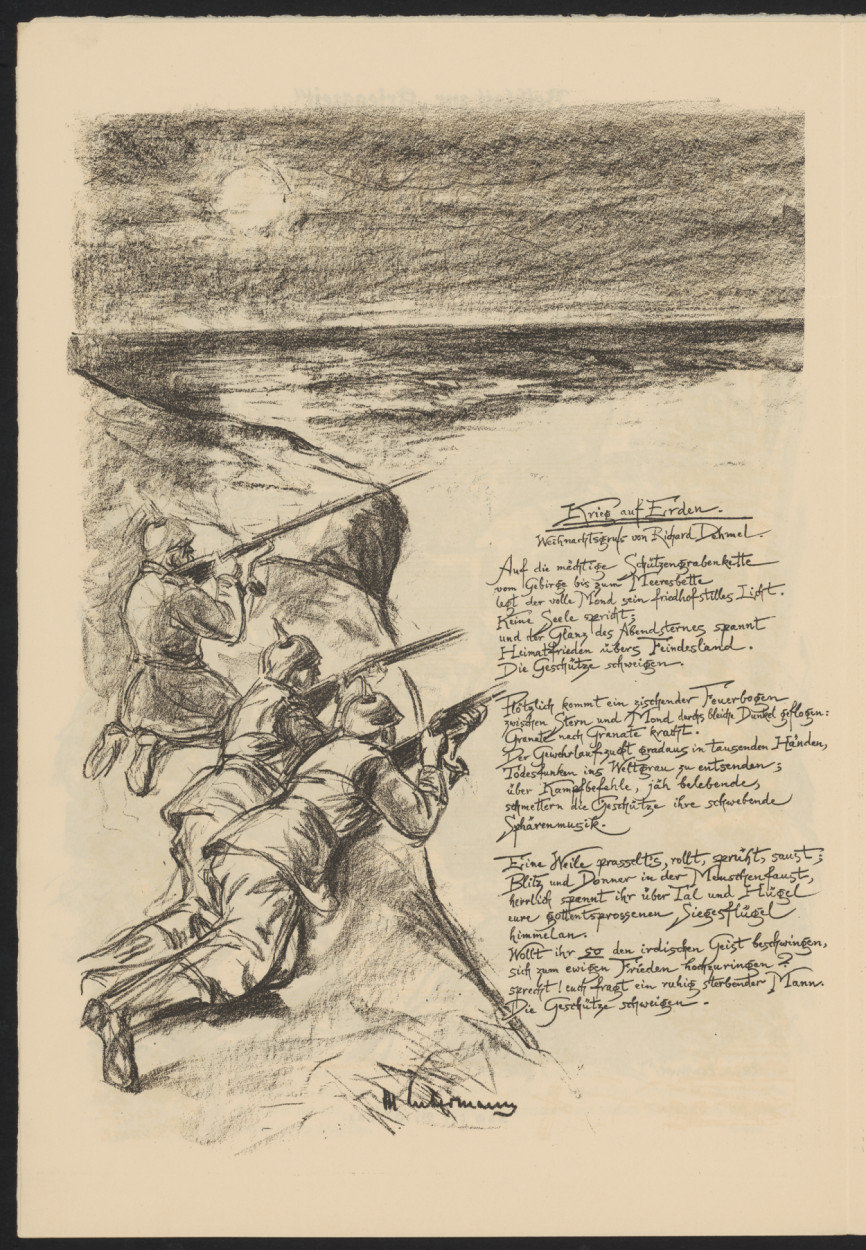 Krieg auf Erden.
Weihnachtsgruß von Richard Dehmel.
Auf die mächtige Schützengrabenkette
vom Gebirge bis zum Meeresbette
legt der volle Mond sein friedhofstilles Licht.
Keine Seele spricht;
und der Glanz des Abendsternes spannt
Heimatfrieden übers Feindesland.
Die Geschütze schweigen.
Plötzlich kommt ein zischender Feuerbogen
zwischen Stern und Mond durchs bleiche Dunkel geflogen:
Granate nach Granate kracht.
Der Gewehrlauf zuckt gradaus in tausenden Händen,
Todesfunken ins Weltgrau zu entsenden;
über Kampfbefehle, jäh belebende,
schmettern die Geschütze ihre schwebende
Sphärenmusik.
Eine Weile prasselts, rollt, sprüht, saust;
Blitz und Donner in der Menschenfaust,
herrlich spannt ihr über Tal und Hügel
eure gottentsprossenen Siegesflügel
himmelan.
Wollt ihr so den irdischen Geist beschwingen,
sich zum ewigen Frieden hochzuringen?
sprecht! euch fragt ein ruhig sterbender Mann.
Die Geschütze schweigen.
M Liebermann